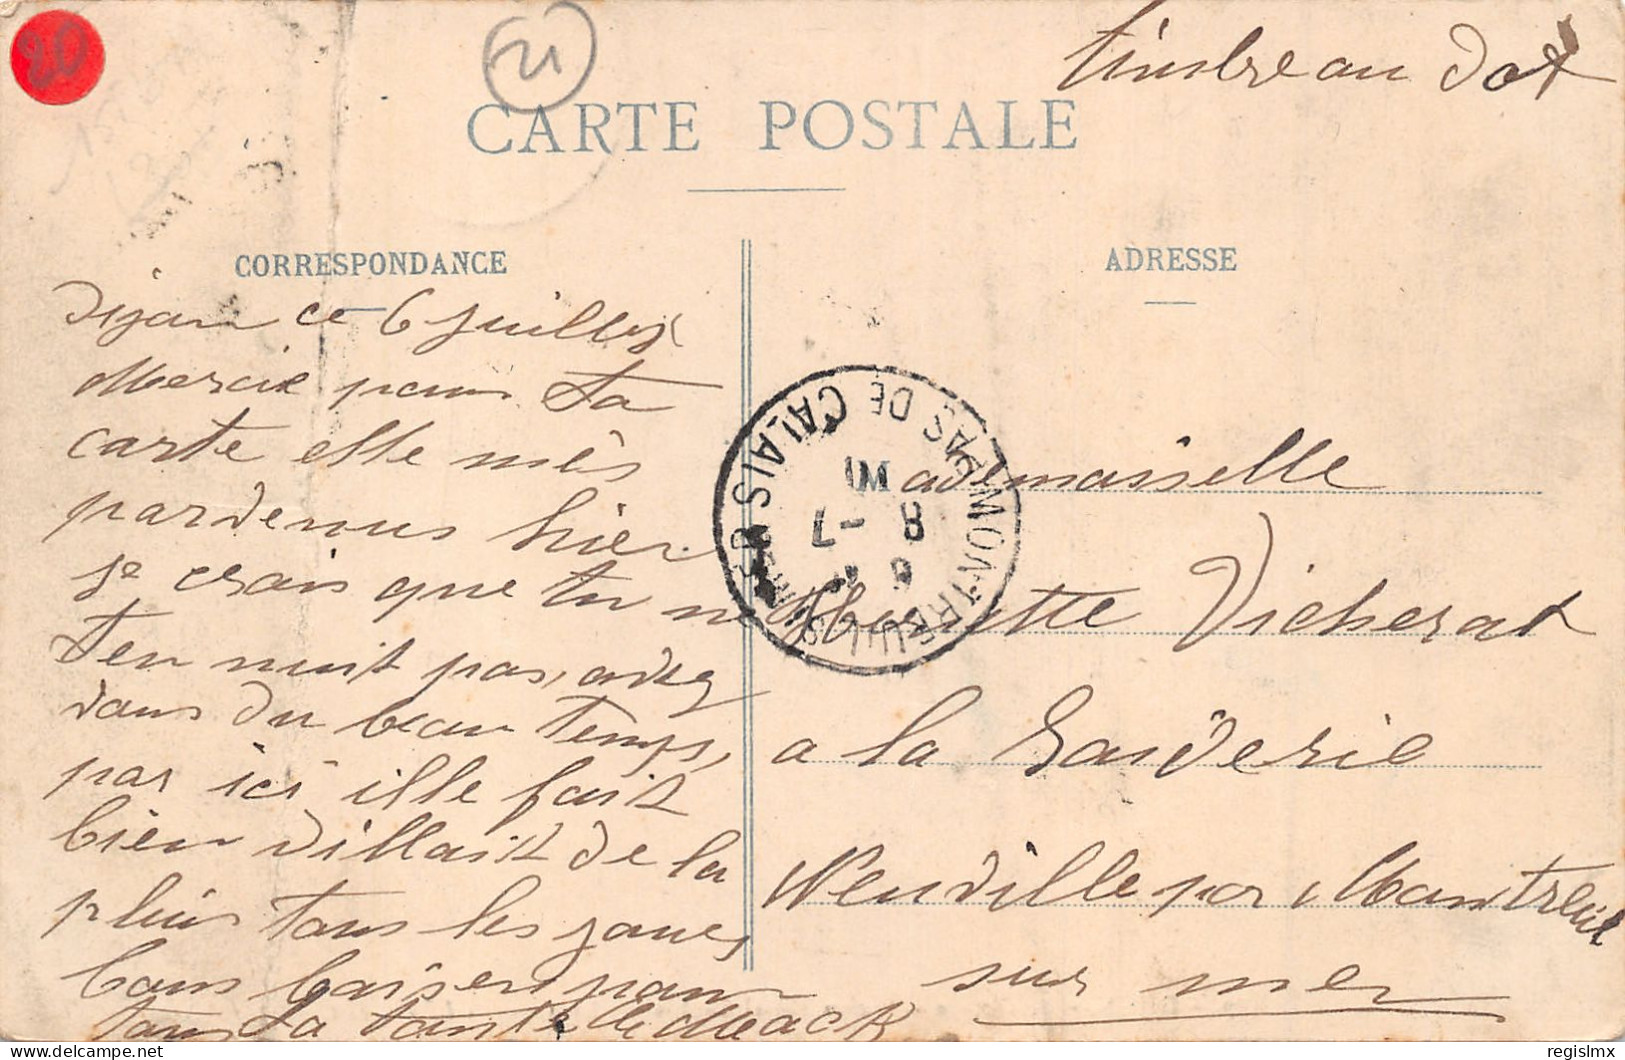 20
21
timbre au dos
CARTE POSTALE
CORRESPONDANCE
ADRESSE
Dijon ce 6 juillet
Mercie pour ta
carte elle mès
pardenus hier
je crois que tu ne
t'en nuit pas, avez
vous du beau temps,
par ici ille fait
bien villait de la
pluis tous les jours
bons baisers pour
tous ta tante
MONTREUIL-S-MER
PAS DE CALAIS
8 -7
Mademaiselle
Vicherat
a la Garderie
Neuville par Montreuil
sur mer
regislmx